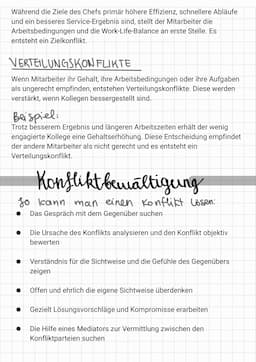 Während die Ziele des Chefs primär höhere Effizienz, schnellere Abläufe
und ein besseres Service-Ergebnis sind, stellt der Mitarbeiter die
Arbeitsbedingungen und die Work-Life-Balance an erste Stelle. Es
entsteht ein Zielkonflikt.
VERTEILUNGSKONFLIKTE
Wenn Mitarbeiter ihr Gehalt, ihre Arbeitsbedingungen oder ihre Aufgaben
als ungerecht empfinden, entstehen Verteilungskonflikte. Diese werden
verstärkt, wenn Kollegen bessergestellt sind.
Beispiel:
Trotz besserem Ergebnis und längeren Arbeitszeiten erhält der wenig
engagierte Kollege eine Gehaltserhöhung. Diese Entscheidung empfindet
der andere Mitarbeiter als nicht gerecht und es entsteht ein
Verteilungskonflikt.
Konfliktbewältigung
So kann man einen Konflikt lösen:
● Das Gespräch mit dem Gegenüber suchen
● Die Ursache des Konflikts analysieren und den Konflikt objektiv
bewerten
● Verständnis für die Sichtweise und die Gefühle des Gegenübers
zeigen
● Offen und ehrlich die eigene Sichtweise überdenken
● Gezielt Lösungsvorschläge und Kompromisse erarbeiten
● Die Hilfe eines Mediators zur Vermittlung zwischen den
Konfliktparteien suchen